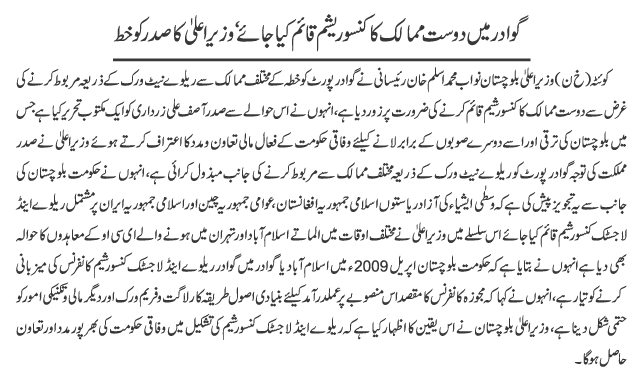 گوادر میں دوست ممالک کا کنسوریشم قائم کیا جائے‘ وزیراعلیٰ کا صدر کو خط
کوئٹہ (خ ن) وزیراعلیٰ بلوچستان نواب محمد اسلم خان رئیسانی نے گوادر پورٹ کو خطہ کے مختلف ممالک سے ریلوے نیٹ ورک کے ذریعہ مربوط کرنے کی
غرض سے دوست ممالک کا کنسورشیم قائم کرنے کی ضرورت پر زور دیا ہے، انہوں نے اس حوالے سے صدر آصف علی زرداری کو ایک مکتوب تحریر کیا ہے جس
میں بلوچستان کی ترقی اور اسے دوسرے صوبوں کے برابر لانے کیلئے وفاقی حکومت کے فعال مالی تعاون و مدد کا اعتراف کرتے ہوئے وزیراعلیٰ نے صدر
مملکت کی توجہ گوادر پورٹ کو ریلوے نیٹ ورک کے ذریعہ مختلف ممالک سے مربوط کرنے کی جانب مبذول کرائی ہے، انہوں نے حکومت بلوچستان کی
جانب سے یہ تجویز پیش کی ہے کہ وسطی ایشیاء کی آزاد ریاستوں اسلامی جمہوریہ افغانستان، عوامی جمہوریہ چین اور اسلامی جمہوریہ ایران پر مشتمل ریلوے اینڈ
لاجسٹک کنسورشیم قائم کیا جائے اس سلسلے میں وزیراعلیٰ نے مختلف اوقات میں الماتے اسلام آباد اور تہران میں ہونے والے ای سی او کے معاہدوں کا حوالہ
بھی دیا ہے انہوں نے بتایا ہے کہ حکومت بلوچستان اپریل 2009ء میں اسلام آباد یا گوادر میں گوادر ریلوے اینڈ لاجسٹک کنسورشیم کانفرنس کی میزبانی
کرنے کو تیار ہے، انہوں نے کہا کہ مجوزہ کانفرنس کا مقصد اس منصوبے پر عملدرآمد کیلئے بنیادی اصول طریقہ کار لاگت و فریم ورک اور دیگر مالی و تکنیکی امور کو
حتمی شکل دینا ہے، وزیراعلیٰ بلوچستان نے اس یقین کا اظہار کیا ہے کہ ریلوے اینڈ لاجسٹک کنسورشیم کی تشکیل میں وفاقی حکومت کی بھرپور مدد اور تعاون
حاصل ہوگا۔